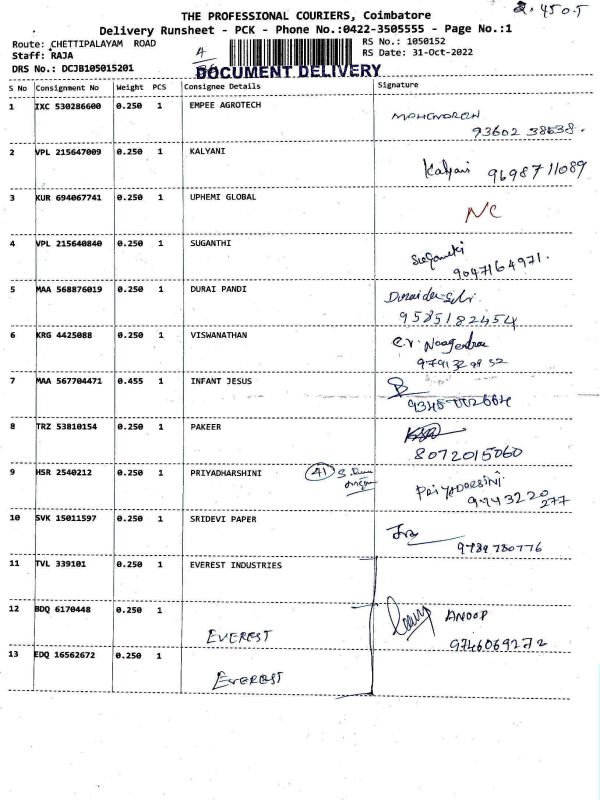 2.450.5
THE PROFESSIONAL COURIERS, Coimbatore
Delivery Runsheet - PCK - Phone No.:0422-3505555 - Page No.:1
Route: CHETTIPALAYAM ROAD RS No.: 1050152
Staff: RAJA 4 RS Date: 31-Oct-2022
DRS No.: DCJB105015201 DOCUMENT DELIVERY
S No Consignment No Weight PCS Consignee Details Signature
1 IXC 530286600 0.250 1 EMPEE AGROTECH
93602 38638.
2 VPL 215647009 0.250 1 KALYANI Kalyani 9698711089
3 KUR 694067741 0.250 1 UPHEMI GLOBAL NC
4 VPL 215640840 0.250 1 SUGANTHI
9047164971.
5 MAA 568876019 0.250 1 DURAI PANDI
9585182454
6 KRG 4425088 0.250 1 VISWANATHAN C.V. Naagendra
7 MAA 567704471 0.455 1 INFANT JESUS
8 TRZ 53810154 0.250 1 PAKEER
8072015060
9 HSR 2540212 0.250 1 PRIYADHARSHINI 41 PRIYADORSINI
9943220
277
10 SVK 15011597 0.250 1 SRIDEVI PAPER
9789780776
11 TVL 339101 0.250 1 EVEREST INDUSTRIES
12 BDQ 6170448 0.250 1 EVEREST ANOOP
9746069272
13 EDQ 16562672 0.250 1 EVEREST